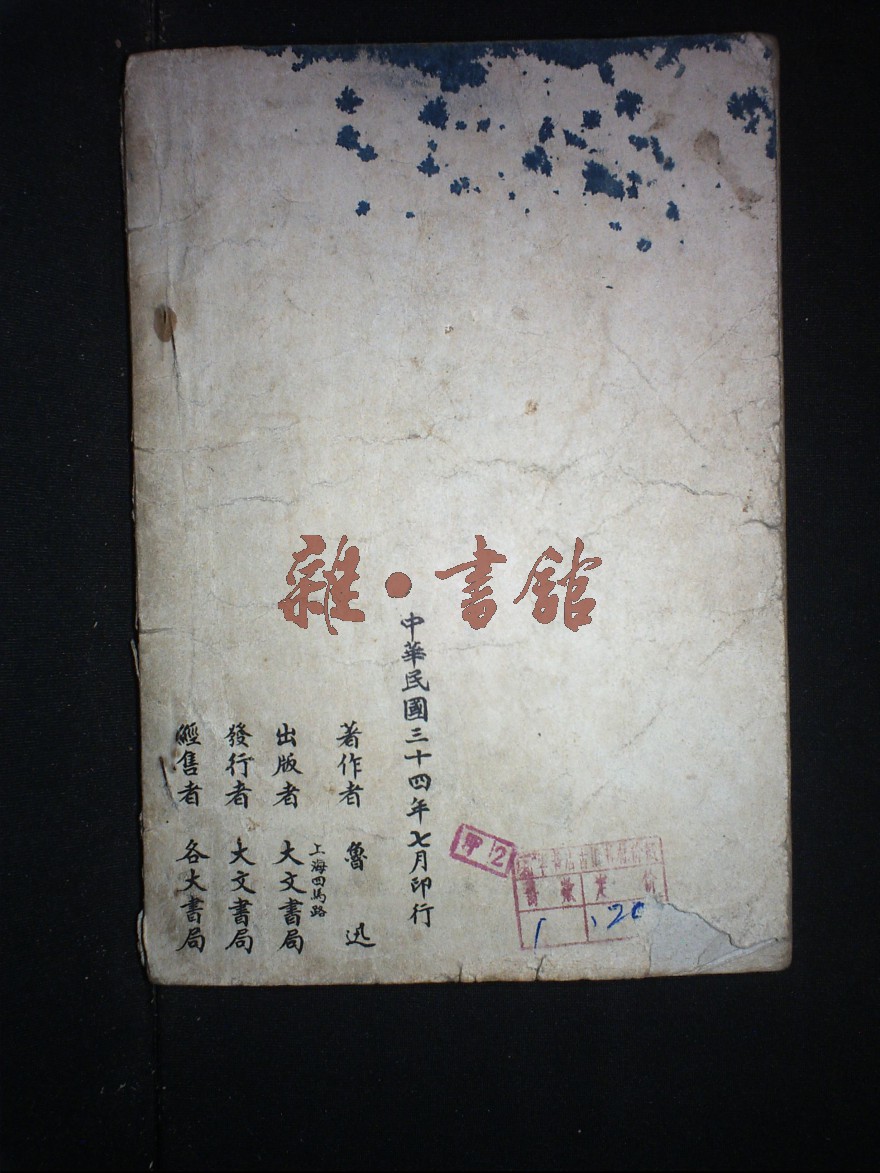 雜·書舘
中華民國三十四年七月印行
著作者 魯迅
上海四馬路
出版者 大文書局
發行者 大文書局
經售者 各大書局
甲2
冊數 定價
1 1.20